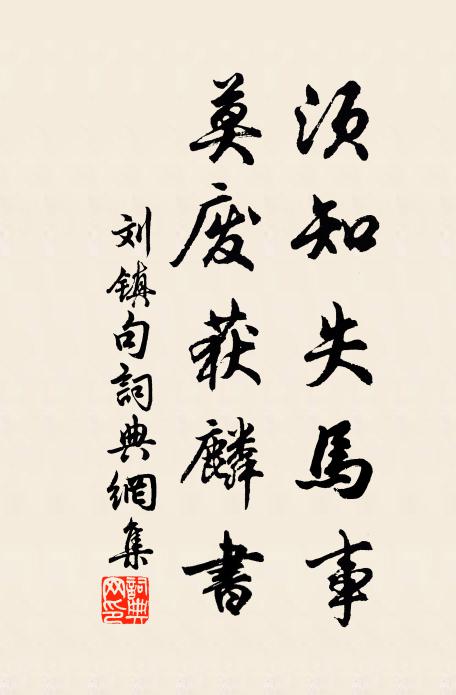 须知失馬事
莫废获麟書
刘镇句詞典網集
詞典
网印